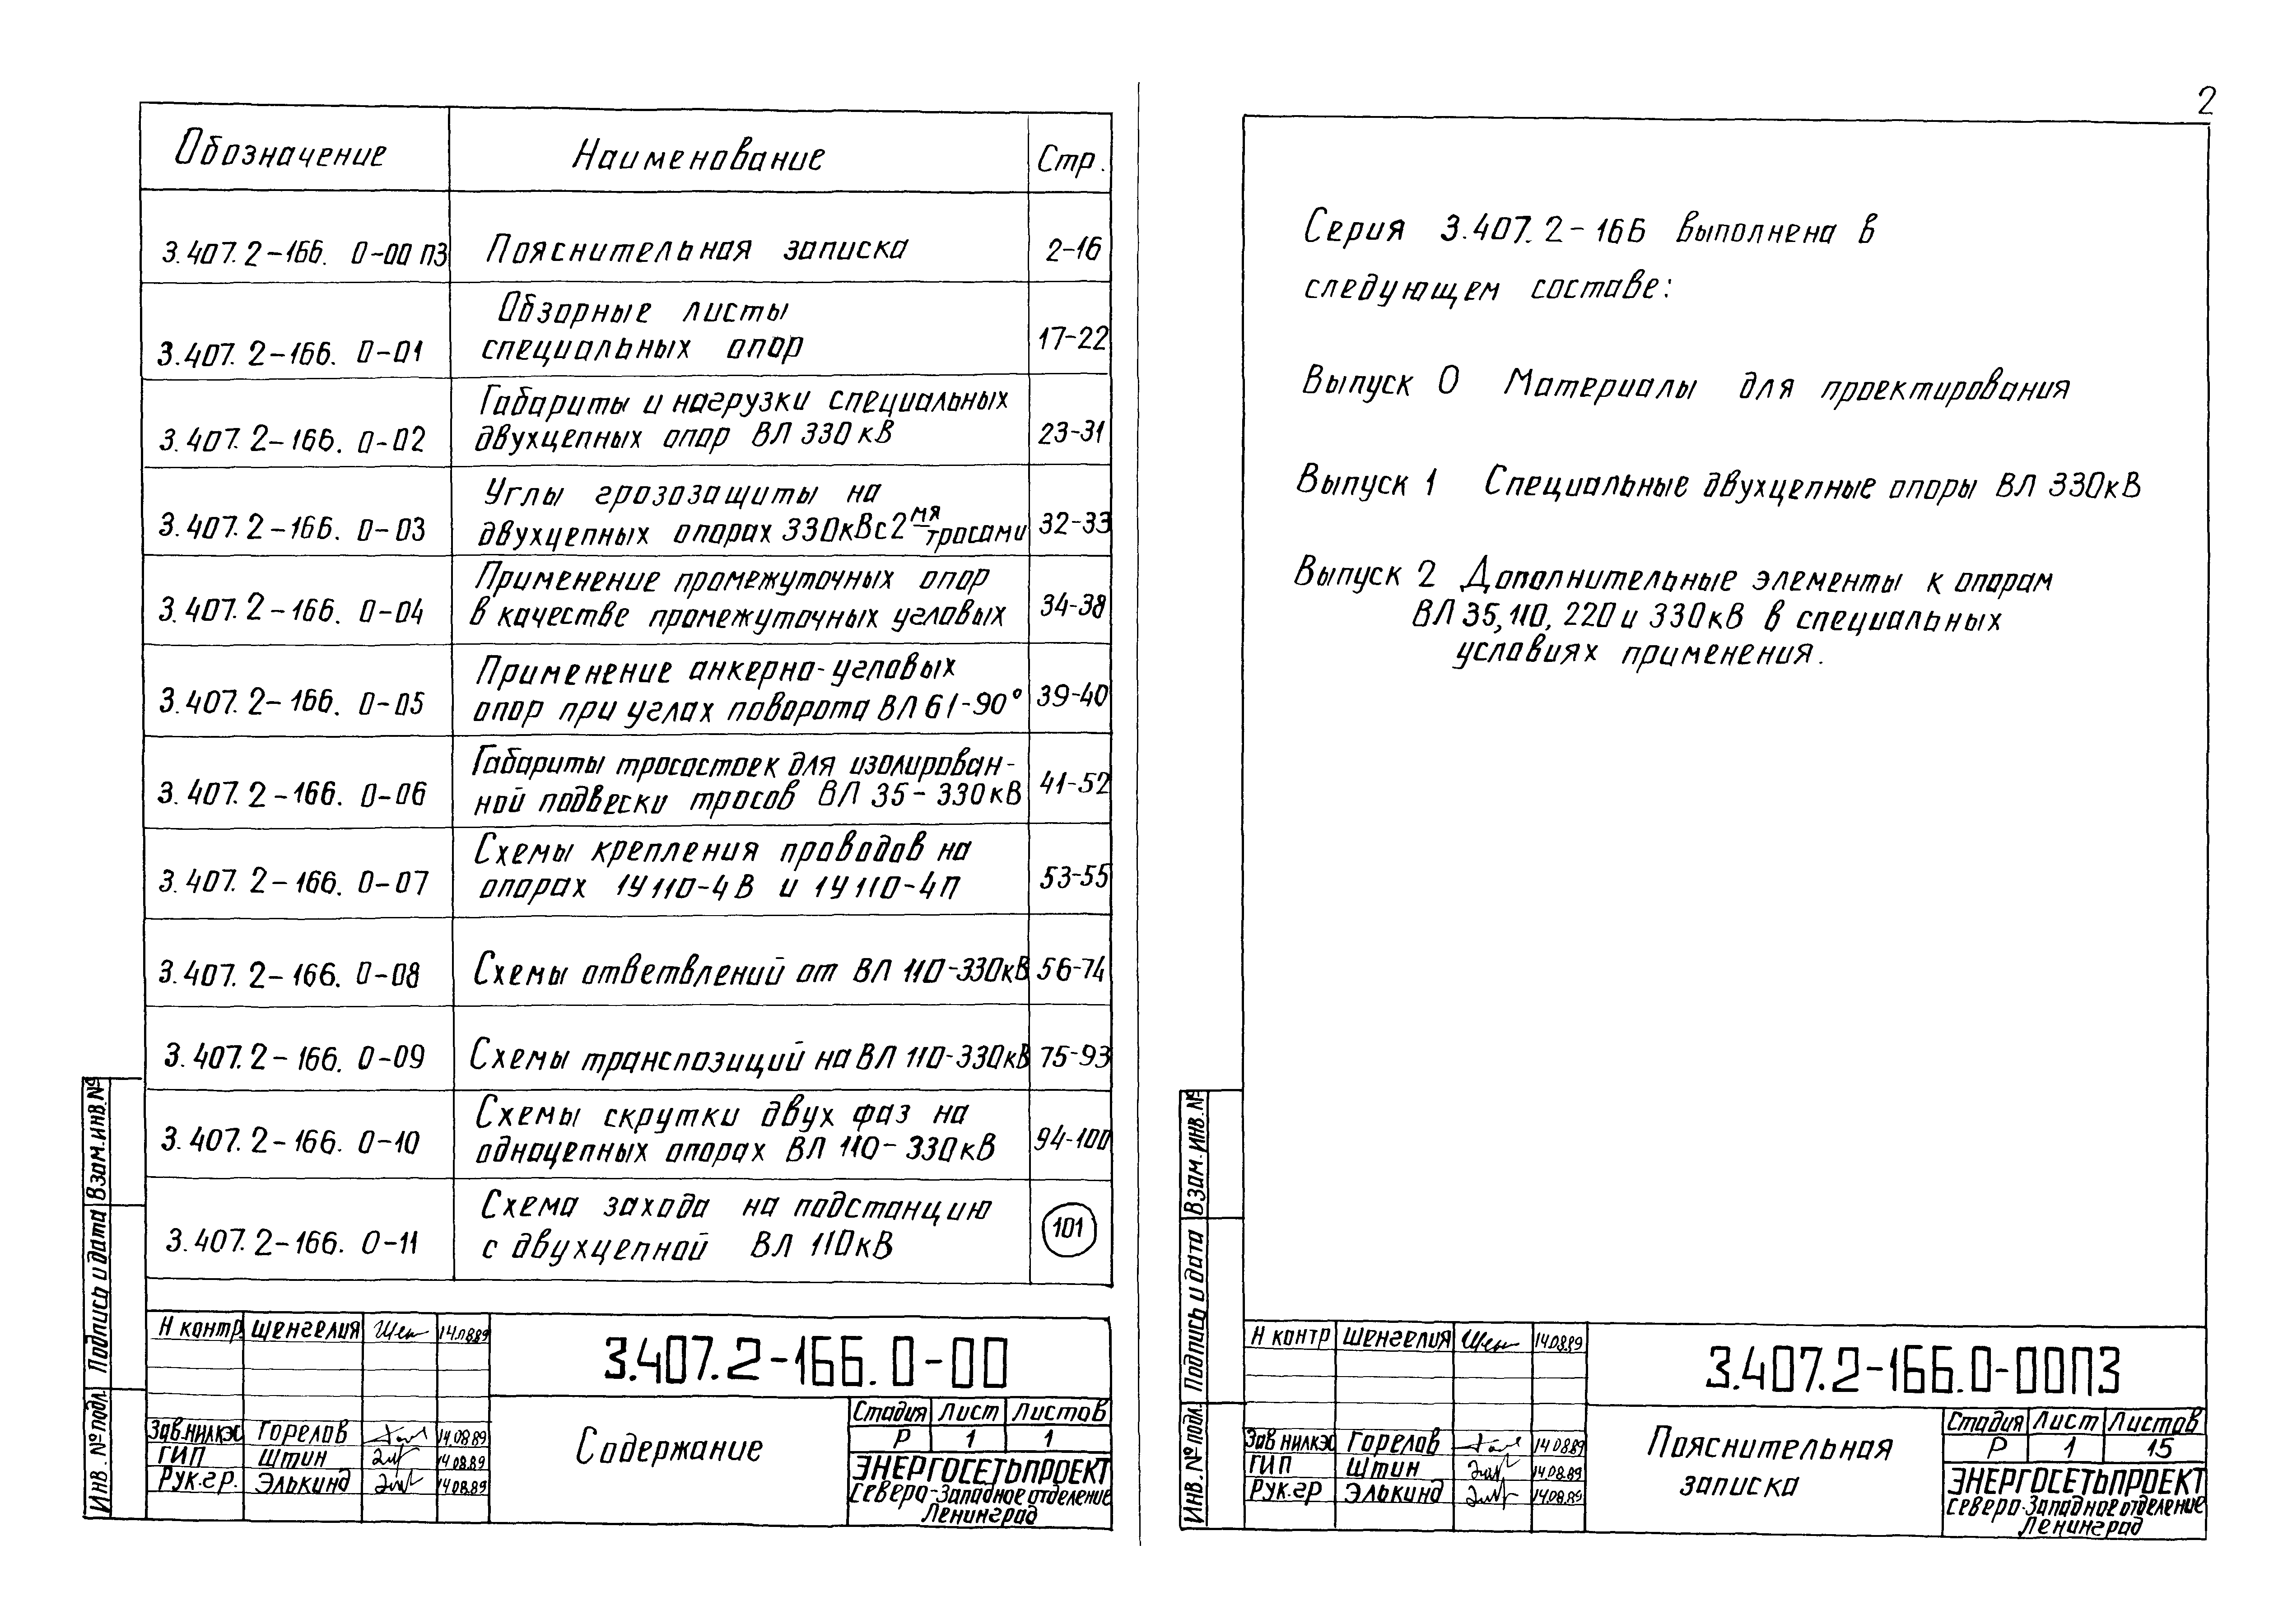 2
Обозначение Наименование Стр.
3.407.2-166. 0-00 ПЗ Пояснительная записка 2-16
Обзорные листы
3.407.2-166. 0-01 специальных опор 17-22
Габариты и нагрузки специальных
3.407.2-166. 0-02 двухцепных опор ВЛ 330 кВ 23-31
Углы грозозащиты на
3.407.2-166. 0-03 двухцепных опорах 330кВ с 2мя тросами 32-33
Применение промежуточных опор
3.407.2-166. 0-04 в качестве промежуточных угловых 34-38
Применение анкерно-угловых
3.407.2-166. 0-05 опор при углах поворота ВЛ 61-90° 39-40
Габариты тросостоек для изолирован-
3.407.2-166. 0-06 ной подвески тросов ВЛ 35-330кВ 41-52
Схемы крепления проводов на
3.407.2-166. 0-07 опорах 1У110-4В и 1У110-4П 53-55
3.407.2-166. 0-08 Схемы ответвлений от ВЛ 110-330кВ 56-74
3.407.2-166. 0-09 Схемы транспозиций на ВЛ 110-330кВ 75-93
Схемы скрутки двух фаз на
3.407.2-166. 0-10 одноцепных опорах ВЛ 110-330кВ 94-100
Схема захода на подстанцию
3.407.2-166. 0-11 с двухцепной ВЛ 110кВ 101
Взам.инв.№
Подпись и дата
Инв. № подл.
Н контр. Шенгелия Шен 14.08.89
3.407.2-166.0-00
Зав.НИЛКЭС Горелов 14.08.89
ГИП Штин 14.08.89
Рук.гр. Элькинд 14.08.89
Содержание
Стадия Лист Листов
Р 1 1
ЭНЕРГОСЕТЬПРОЕКТ
Северо-Западное отделение
Ленинград
Серия 3.407.2-166 выполнена в
следующем составе:
Выпуск 0 Материалы для проектирования
Выпуск 1 Специальные двухцепные опоры ВЛ 330кВ
Выпуск 2 Дополнительные элементы к опорам
ВЛ 35, 110, 220 и 330кВ в специальных
условиях применения.
Взам.инв.№
Подпись и дата
Инв. № подл.
Н контр Шенгелия Шен 14.08.89
3.407.2-166.0-00ПЗ
Зав НИЛКЭС Горелов 14.08.89
ГИП Штин 14.08.89
Рук.гр Элькинд 14.08.89
Пояснительная
записка
Стадия Лист Листов
Р 1 15
ЭНЕРГОСЕТЬПРОЕКТ
Северо-Западное отделение
Ленинград